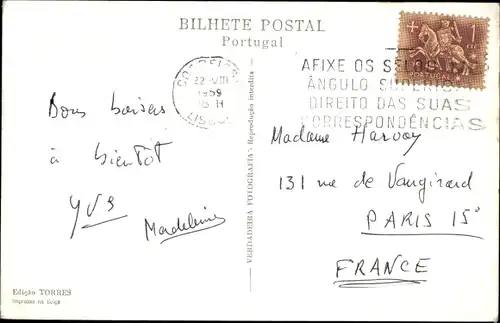 BILHETE POSTAL
Portugal
CORREIOS
22 VIII
1959
18 H
LISBOA
AFIXE OS SELOS NO
ÂNGULO SUPERIOR
DIREITO DAS SUAS
CORRESPONDÊNCIAS
Bons baisers
à bientôt
YVS
Madeleine
VERDADEIRA FOTOGRAFIA - Reprodução interdita -
Madame Harvoy
131 rue de Vaugirard
PARIS 15e
FRANCE
Edição TORRES
Impresso na Belga